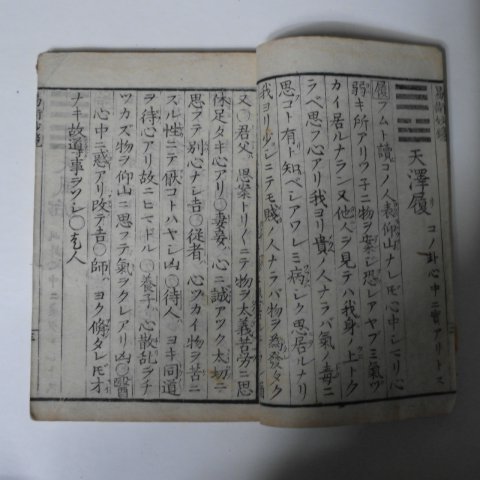 天澤履
コノ卦心中ニ實アリトス
履フムト讀コノ人表仰山ナレ𪜈心中シマリ心
弱キ所アリワ子ニ物ヲ案シ恐レアヤブミ氣ヅ
カイ居ルナラン又他人ヲ見テハ我身ノ上トク
ラベ思フ心アリ我ヨリ貴ノ人ナラバ氣ノ毒ニ
思コト有ト知ベシアワレミ病シク思居ルナリ
我ヨリ シニテモ賤ノ人ナラバ物ヲ為
又〇君父 思案トリ〱ニテ物ヲ太義苦労ニ思
休足タキ心アリ〇妻妾 心ニ誠アツク太切ニ
思フテ別心ナシ吉〇従者 心ヅカイ物ヲ苦ニ
スル性ニテ倶コトハヤシ凶〇待人 ヨキ同道
ヲ待心アリ故ニヒマドル〇養子 心散乱ヲチ
ツカズ物ヲ仰山ニ思フテ氣ヲクレアリ凶〇醫
心中ニ惑アリ改テ吉〇師 ヨク脩タレ𪜈才
ナキ故導事ヲツシ〇乞人